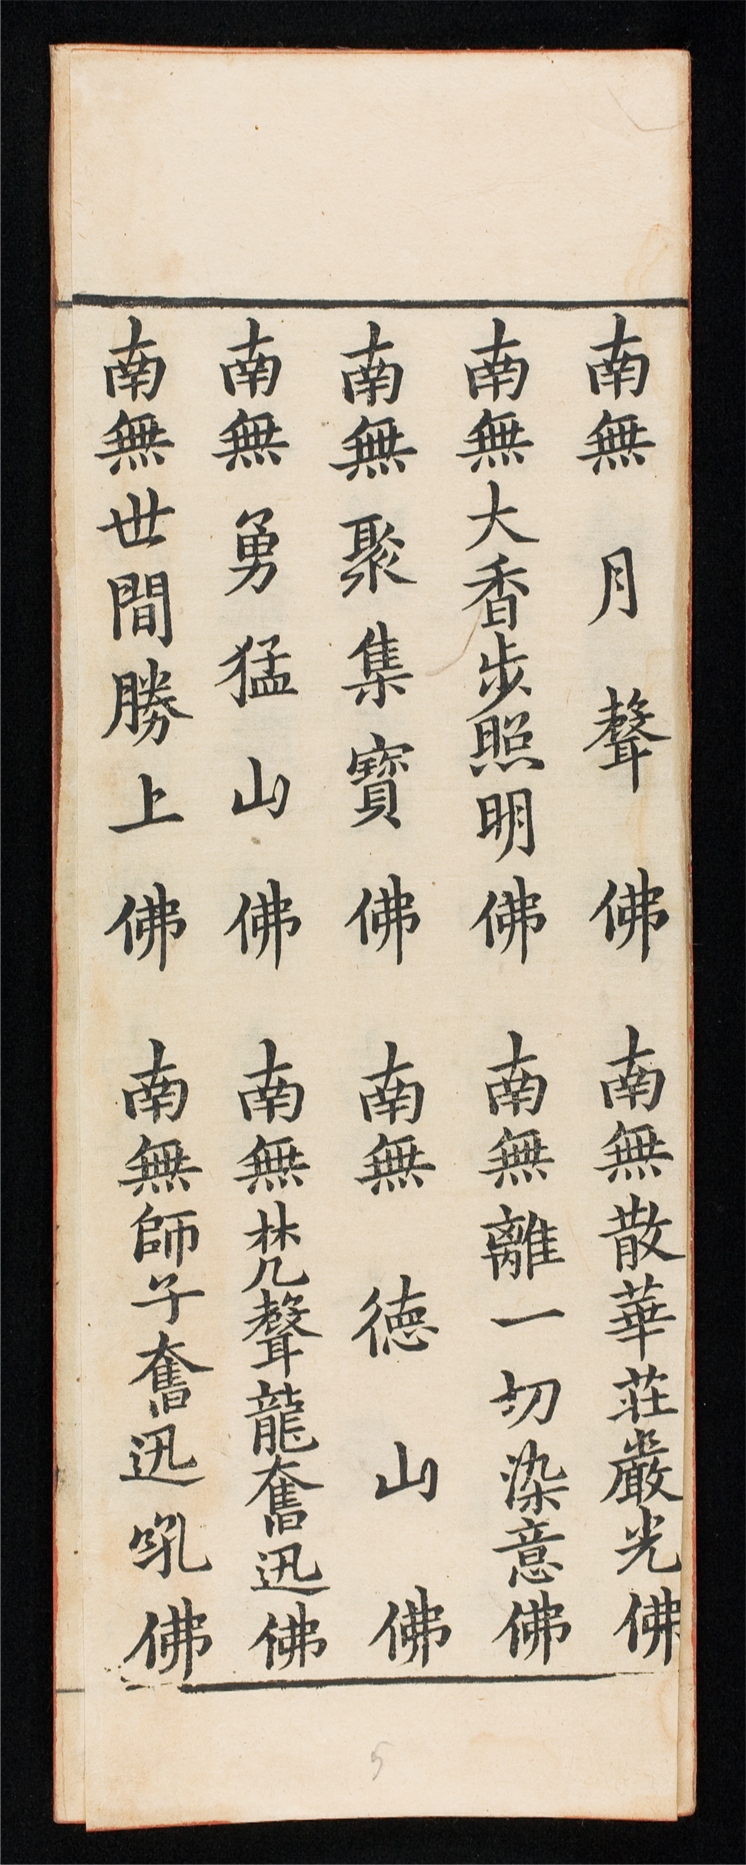 南無月聲佛 南無散華莊嚴光佛
南無大香步照明佛 南無離一切染意佛
南無聚集寶佛 南無德山佛
南無勇猛山佛 南無梵聲龍奮迅佛
南無世間勝上佛 南無師子奮迅吼佛
5